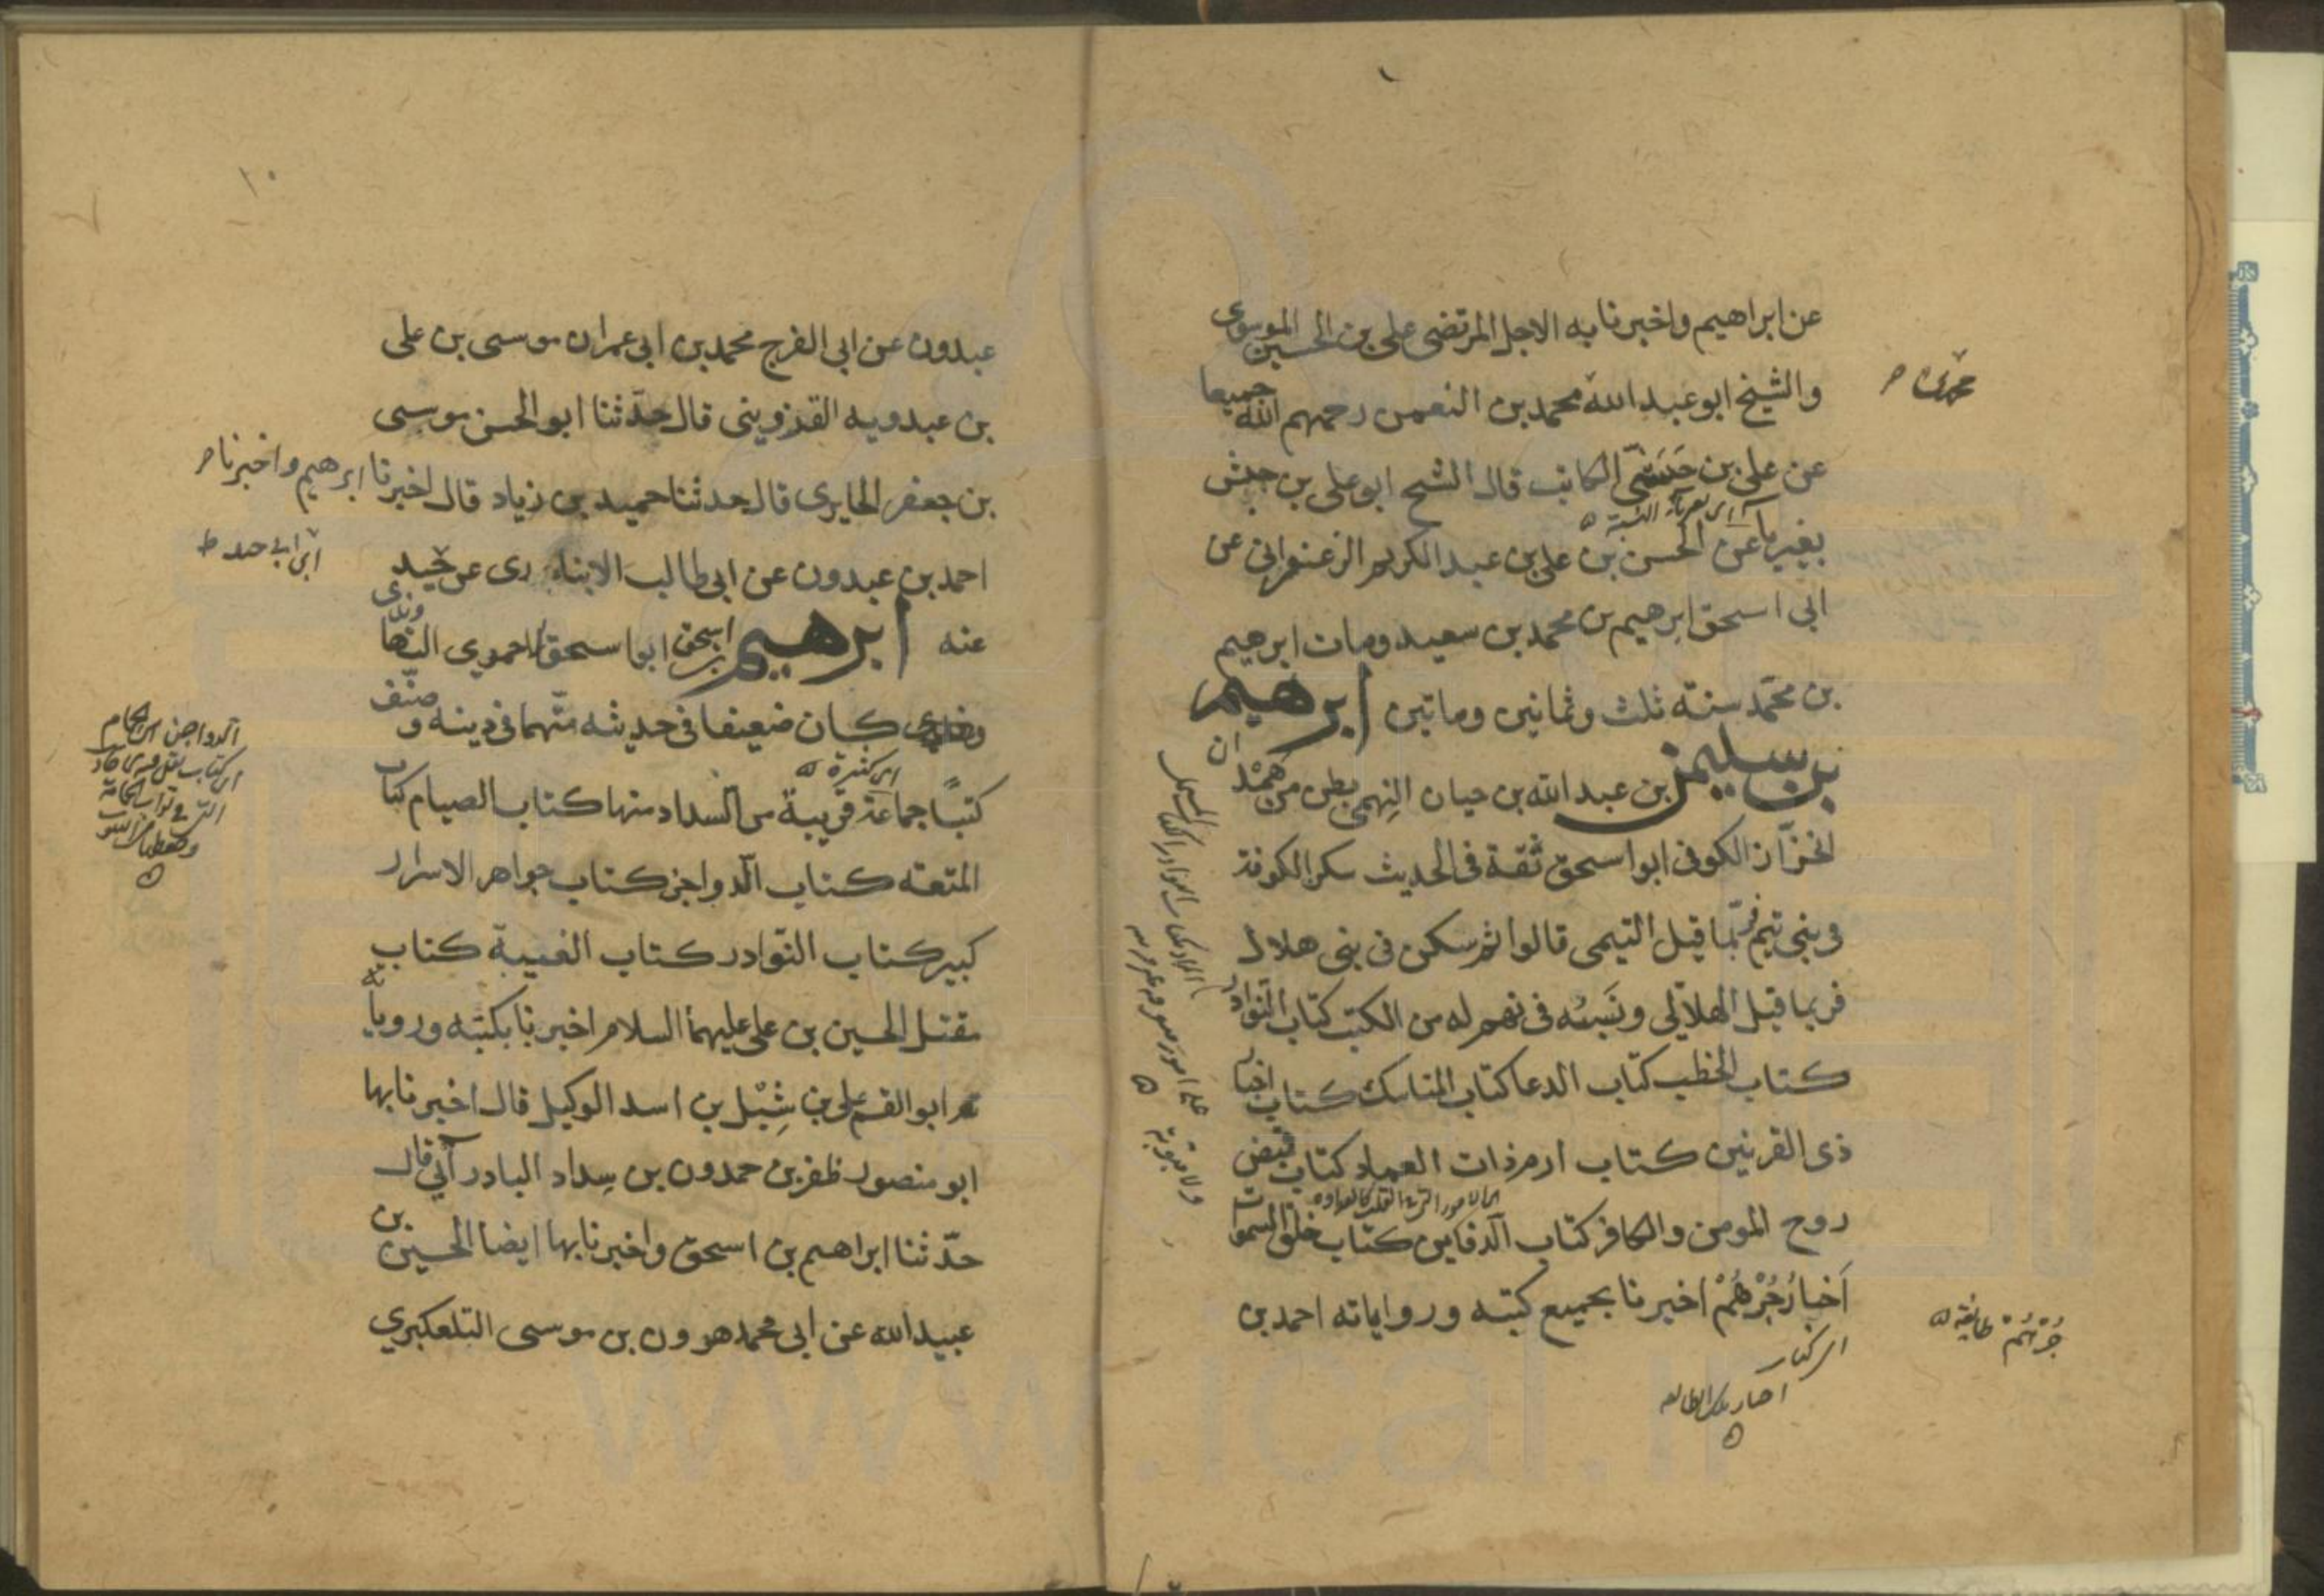 عن ابراهيم واخبرنا به الاجل المرتضى على بن الحسين الموسوى
والشيخ ابو عبد الله محمد بن النعمن رحمهم الله جميعا
عن على بن حبشى الكاتب قال الشيخ ابو على بن حبش
بغير يا عن الحسن بن على بن عبد الكريم الزعفرانى عن
ابى اسحق ابرهيم بن محمد بن سعيد ومات ابرهيم
بن محمد سنة ثلث وثمانين وماتين ابرهيم
بن سليمن بن عبد الله بن حيان النهمى بطن من همدان
الخزاز الكوفى ابو اسحق ثقة فى الحديث سكن الكوفة
فى بنى تيم فربما قيل التيمى قالوا ثم سكن فى بنى هلال
فربما قيل الهلالى ونسبه فى نهم له من الكتب كتاب النوادر
كتاب الخطب كتاب الدعا كتاب المناسك كتاب اخبار
ذى القرنين كتاب ارم ذات العماد كتاب قبض
روح المومن والكافر كتاب الدفاين كتاب خلق السموات
اخبار جرهم اخبرنا بجميع كتبه ورواياته احمد بن
جرهم طايفة
١٠
عبدون عن ابى الفرج محمد بن ابى عمران موسى بن على
بن عبدويه القزوينى قال حدثنا ابو الحسن موسى
بن جعفر الحايرى قال حدثنا حميد بن زياد قال اخبرنا ابرهيم واخبرنا
احمد بن عبدون عن ابى طالب الانبارى عن حميد
عنه ابرهيم بن اسحق ابو اسحق الاحمرى النهاوندى
كان ضعيفا فى حديثه متهما فى دينه وصنف
كتبا جماعة قريبة من السداد منها كتاب الصيام كتاب
اى كثيرة
المتعة كتاب الدواجن كتاب جواهر الاسرار
كبير كتاب النوادر كتاب الغيبة كتاب
مقتل الحسين بن على عليهما السلام اخبرنا بكتبه ورواياته
ابو القسم على بن شبل بن اسد الوكيل قال اخبرنا بها
ابو منصور ظفر بن حمدون بن سداد البادرآئى قال
حدثنا ابراهيم بن اسحق واخبرنا بها ايضا الحسين بن
عبيد الله عن ابى محمد هرون بن موسى التلعكبري